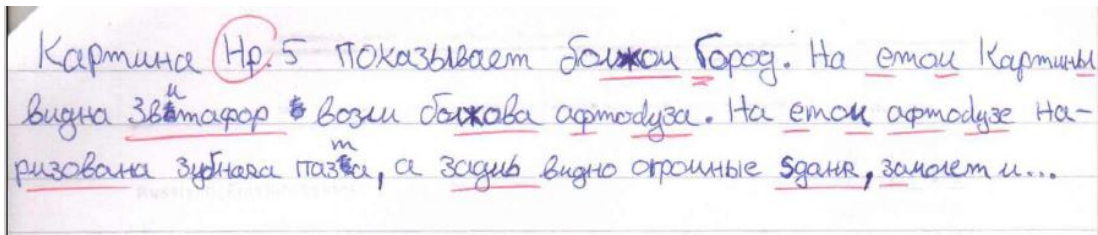 Картина Нр. 5 показывает болжои Город. На етои Картины
видна Звитафор возли болжова афтодуза. На етои афтодузе на-
ризована зубнаа пазта, а задиь видно огромные sданя, замолет и...